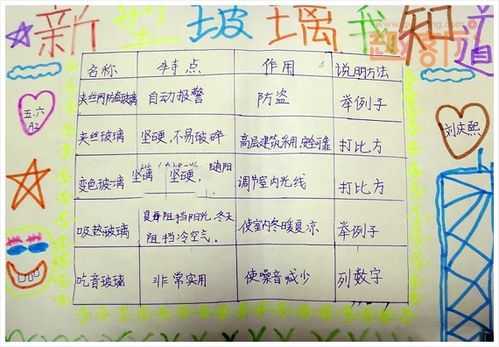 新型玻璃我知道
名称 特点 作用 说明方法
夹丝网防盗玻璃 自动报警 防盗 举例子
夹丝玻璃 坚硬,不易破碎 高层建筑采用,安全可靠 打比方
变色玻璃 坚硬, 随阳 调节室内光线 打比方
吸热玻璃 夏季阻挡阳光,冬天 使室内冬暖夏凉 举例子
阻挡冷空气。
吃音玻璃 非常实用 使噪音减少 列数字
五.六
刘庆熙